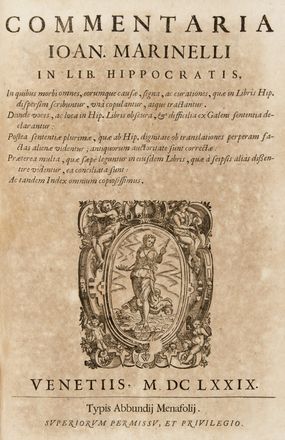 COMMENTARIA
IOAN. MARINELLI
IN LIB. HIPPOCRATIS,
In quibus morbi omnes, eorumque causæ, signa, ac curationes, quæ in Libris Hip.
dispersim scribuntur, unà copulantur, atque tractantur.
Deinde voces, ac loca in Hip. Libris obscura, & difficilia ex Galeni sententia de-
clarantur:
Postea sententiæ plurimæ, quæ ab Hip. dignitate ob translationes perperam fa-
ctas alienæ videntur; antiquorum auctoritate sunt correctæ:
Præterea multa, quæ sæpe leguntur in eiusdem Libris, quæ à seipsis aliàs dissen-
tire videntur, ea conciliata sunt:
Ac tandem Index omnium copiosissimus.
VENETIIS. M. DC LXXIX.
Typis Abbundij Menafolij.
SVPERIORVM PERMISSV, ET PRIVILEGIO.